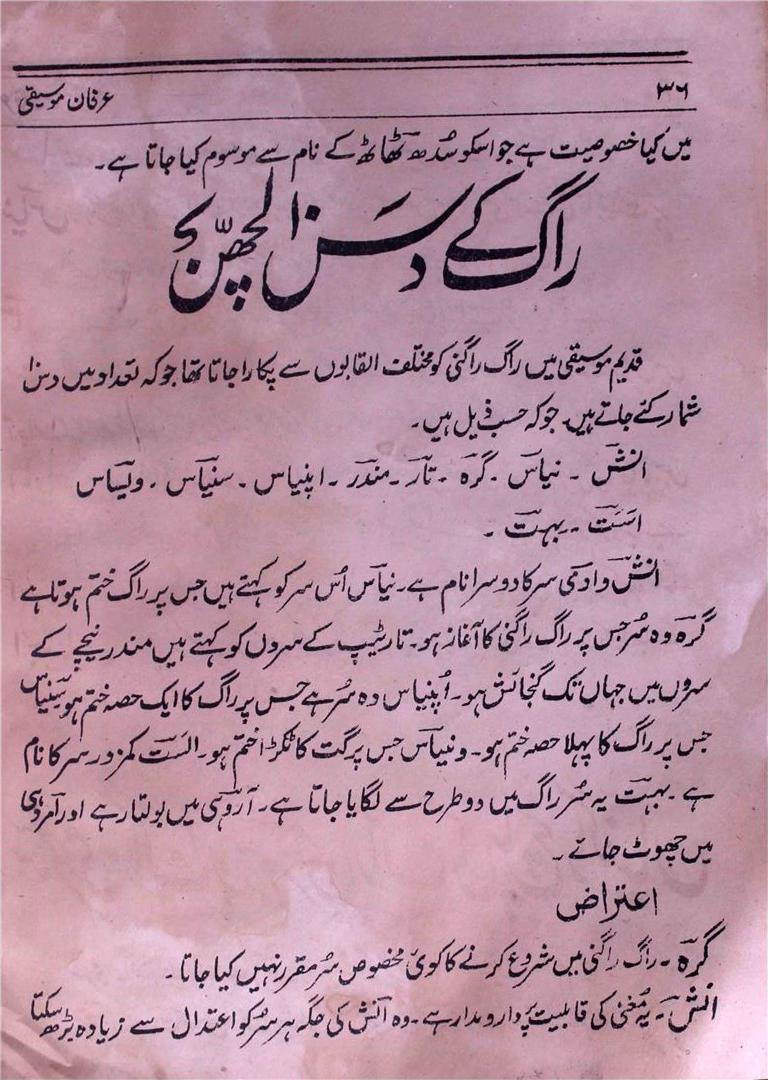 ۳۶
عرفان موسیقی
میں کیا خصوصیت ہے جو اسکو سُدھ ٹھاٹھ کے نام سے موسوم کیا جاتا ہے۔
راگ کے دسن لچھن
قدیم موسیقی میں راگ راگنی کو مختلف القابوں سے پکارا جاتا تھا جو کہ تعداد میں دس
شمار کئے جاتے ہیں۔ جو کہ حسب ذیل ہیں۔
انش ۔ نیاس ۔ گرہ ۔ تار ۔ مندر ۔ اپنیاس ۔ سنیاس ۔ ویساس
است ۔ بہت ۔
انش وادی سر کا دوسرا نام ہے۔ نیاس اُس سر کو کہتے ہیں جس پر راگ ختم ہوتا ہے
گرہ وہ سُر جس پر راگ راگنی کا آغاز ہو۔ تار ٹیپ کے سروں کو کہتے ہیں مندر نیچے کے
سروں میں جہاں تک گنجائش ہو۔ اُپنیاس وہ سُر ہے جس پر راگ کا ایک حصہ ختم ہو سنیاس
جس پر راگ کا پہلا حصہ ختم ہو۔ ونیاس جس پر گت کا ٹکڑا ختم ہو۔ الست کمزور سر کا نام
ہے ۔ بہت یہ سُر راگ میں دو طرح سے لگایا جاتا ہے۔ آروہی میں بولتا رہے اور امروہی
میں چھوٹ جائے ۔
اعتراض
گرہ ۔ راگ راگنی میں شروع کرنے کا کوئی مخصوص سُر مقرر نہیں کیا جاتا ۔
انش ۔ یہ مُغنی کی قابلیت پر دارومدار ہے ۔ وہ انش کی جگہ ہر سُر کو اعتدال سے زیادہ بڑھ سکتا